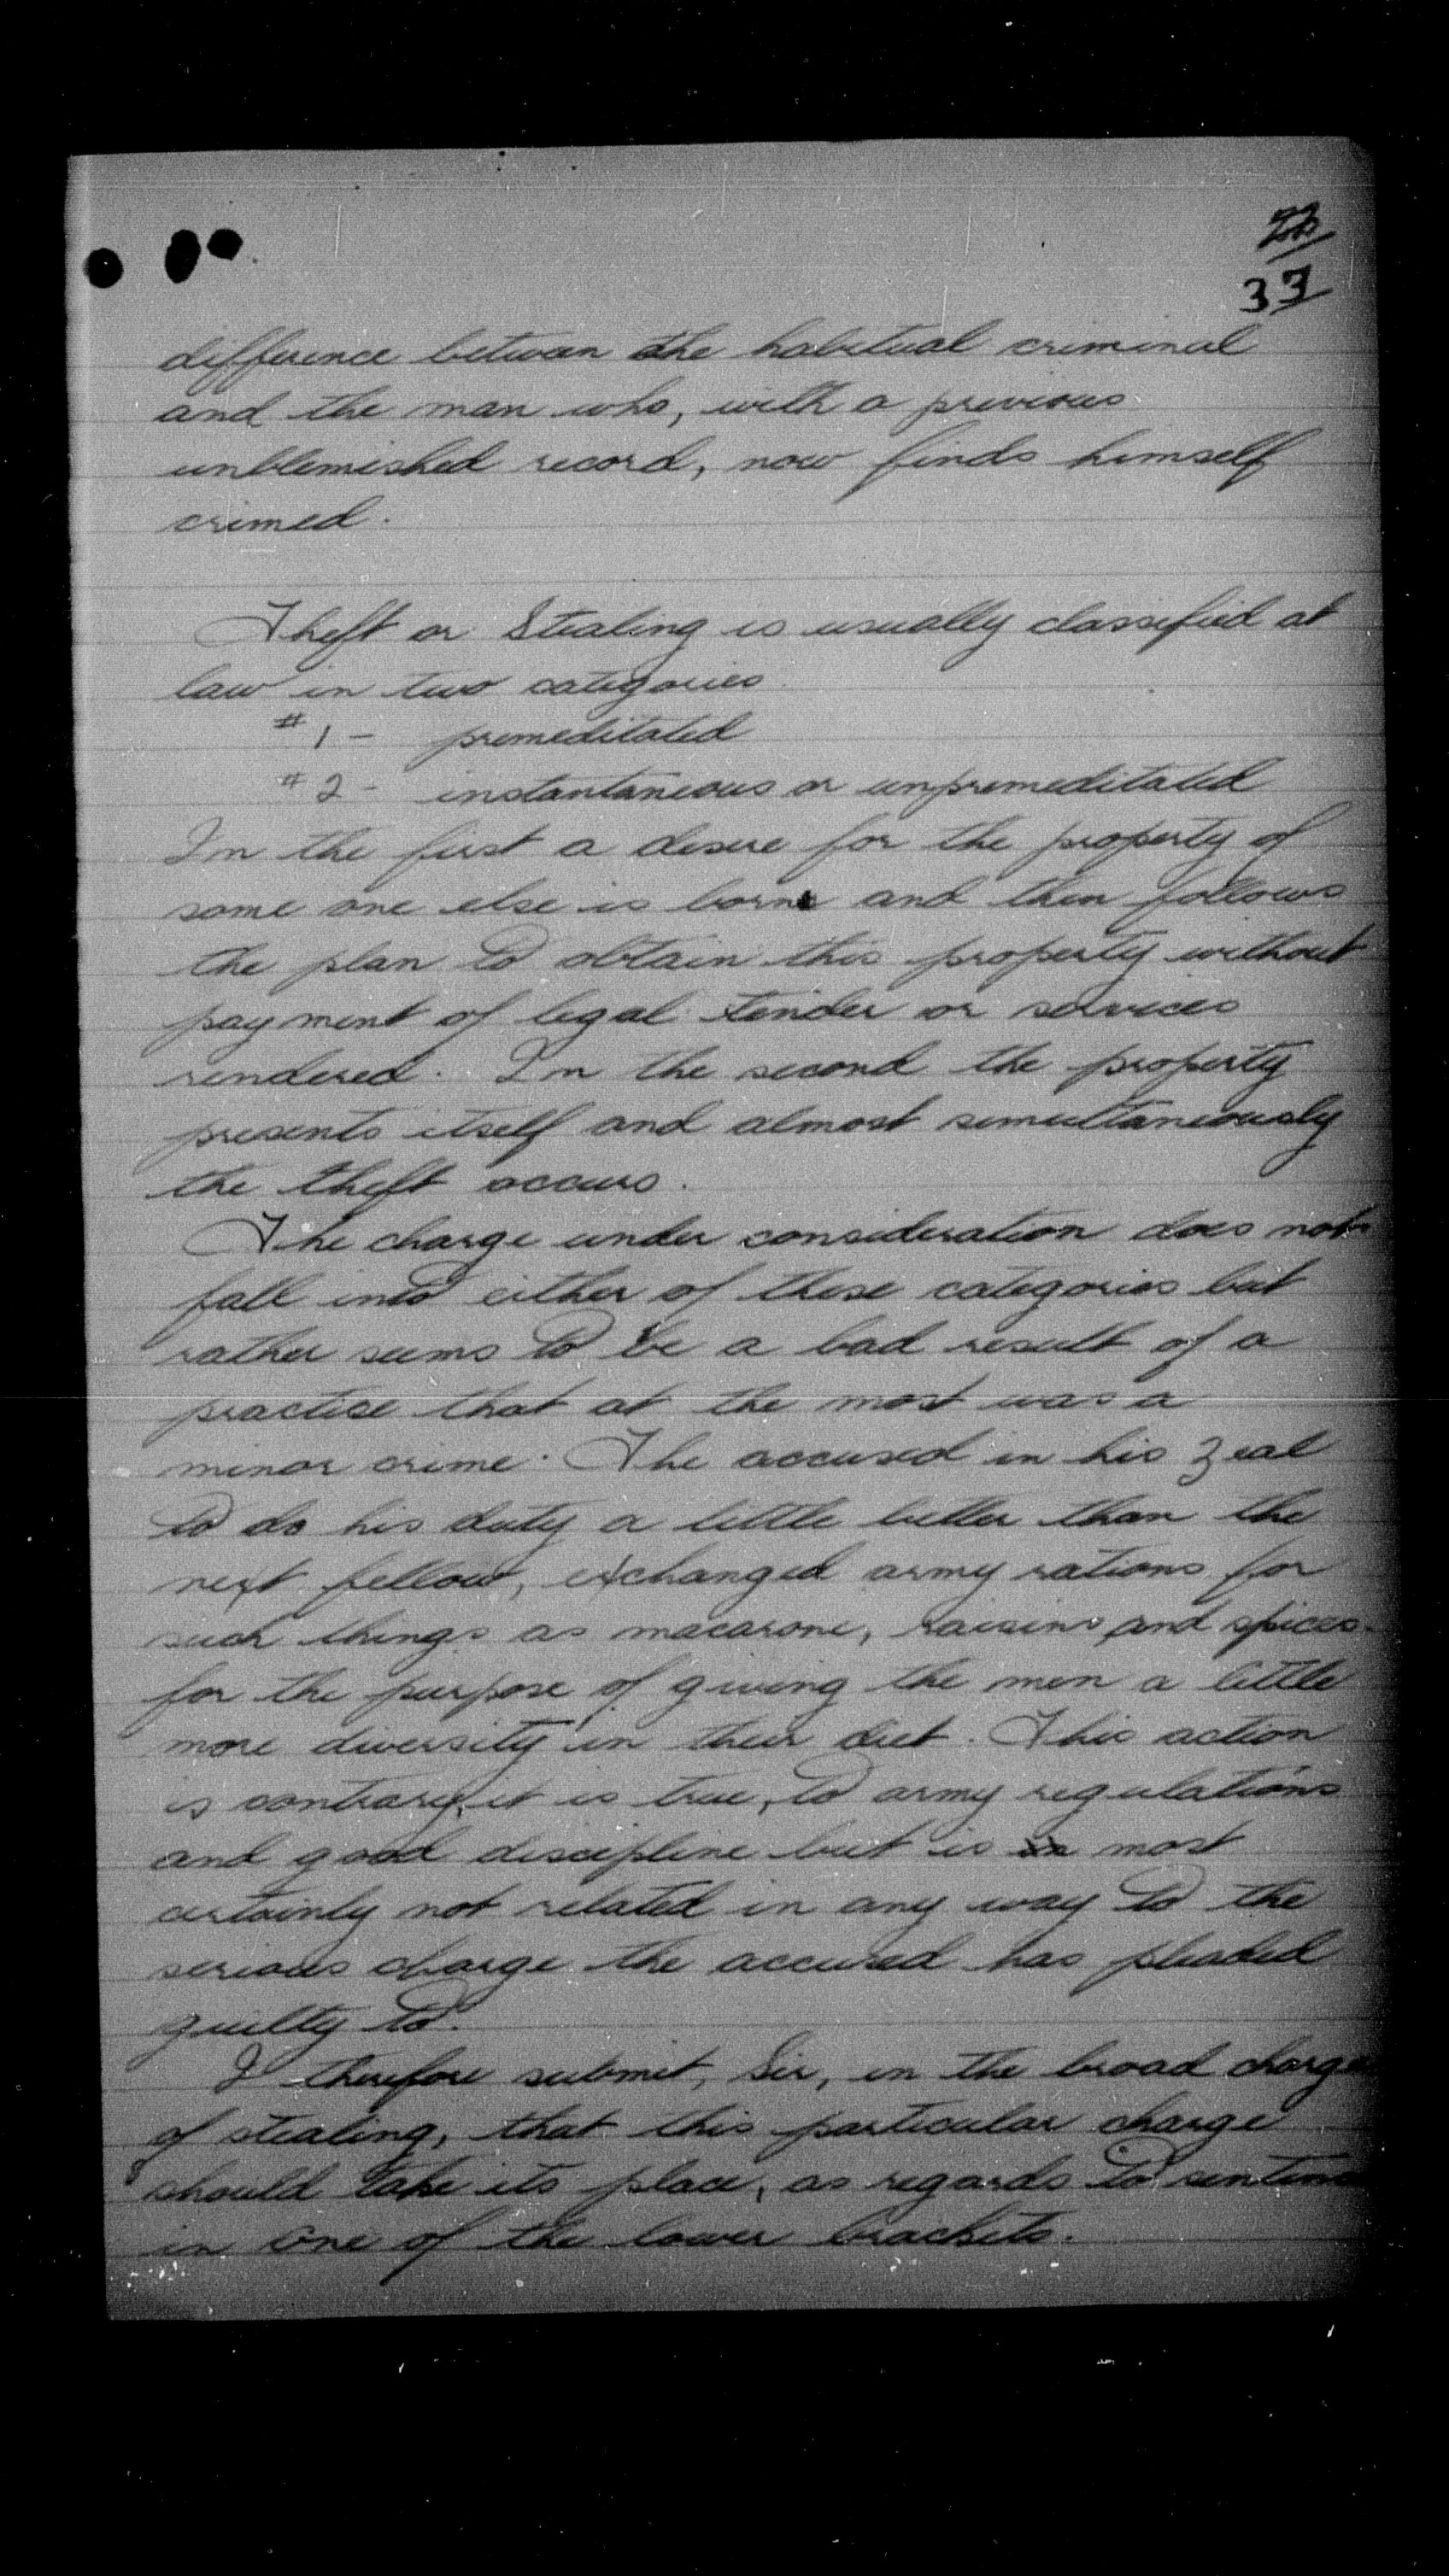 33
difference between the habitual criminal
and the man who, with a previous
unblemished record, now finds himself
crimed.
Theft or Stealing is usually classified at
law in two categories.
#1 - premeditated
#2 - instantaneous or unpremeditated
In the first a desire for the property of
some one else is born and then follows
the plan to obtain this property without
payment of legal tender or services
rendered. In the second the property
presents itself and almost simultaneously
the theft occurs.
The charge under consideration does not
fall into either of these categories but
rather seems to be a bad result of a
practise that at the most was a
minor crime. The accused in his zeal
to do his duty a little better than the
next fellow, exchanged army rations for
such things as macaroni, raisins and spices
for the purpose of giving the men a little
more diversity in their diet. This action
is contrary, it is true, to army regulations
and good discipline but is most
certainly not related in any way to the
serious charge the accused has pleaded
guilty to.
I therefore submit, Sir, in the broad charge
of stealing, that this particular charge
should take its place, as regards to sentence
in one of the lower brackets.